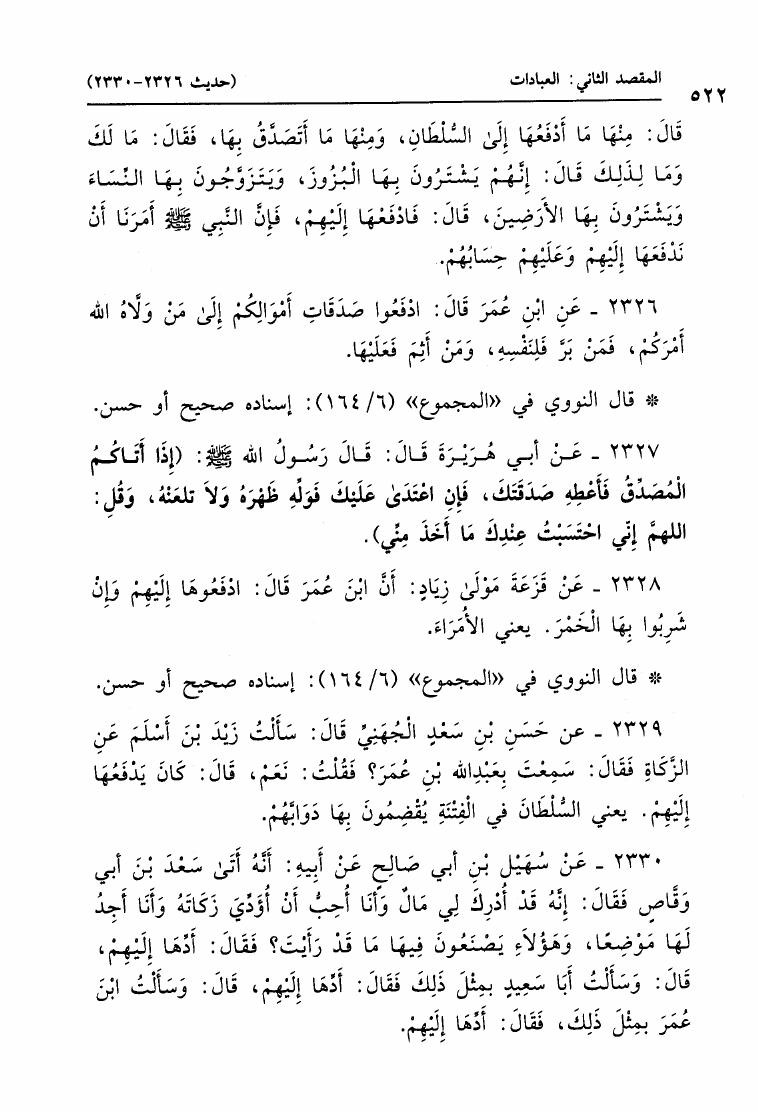 المقصد الثاني: العبادات
(حديث ٢٣٢٦-٢٣٣٠)
٥٢٢
قَالَ: مِنْهَا مَا أَدْفَعُهَا إِلَىٰ السُّلْطَانِ، وَمِنْهَا مَا أَتَصَدَّقُ بِهَا، فَقَالَ: مَا لَكَ
وَمَا لِذَلِكَ قَالَ: إِنَّهُمْ يَشْتَرُونَ بِهَا الْبُزُوزَ، وَيَتَزَوَّجُونَ بِهَا النِّسَاءَ
وَيَشْتَرُونَ بِهَا الأَرَضِينَ، قَالَ: فَادْفَعْهَا إِلَيْهِمْ، فَإِنَّ النَّبِي ﷺ أَمَرَنَا أَنْ
نَدْفَعَهَا إِلَيْهِمْ وَعَلَيْهِمْ حِسَابُهُمْ.
٢٣٢٦ ـ عَنِ ابْنِ عُمَرَ قَالَ: ادْفَعُوا صَدَقَاتِ أَمْوَالِكُمْ إِلَىٰ مَنْ وَلَّاهُ الله
أَمْرَكُمْ، فَمَنْ بَرَّ فَلِنَفْسِهِ، وَمَنْ أَثِمَ فَعَلَيْهَا.
* قال النووي في «المجموع» (٦/ ١٦٤): إسناده صحيح أو حسن.
٢٣٢٧ ـ عَنْ أبي هُرَيْرَةَ قَالَ: قَالَ رَسُولُ الله ﷺ: (إِذَا أَتَاكُمُ
الْمُصَدِّقُ فَأَعْطِهِ صَدَقَتَكَ، فَإِنِ اعْتَدَىٰ عَلَيْكَ فَوَلِّهِ ظَهْرَهُ وَلاَ تلعَنْهُ، وَقُلِ:
اللهمَّ إِنِّي احْتَسَبْتُ عِنْدِكَ مَا أَخَذَ مِنِّي).
٢٣٢٨ ـ عَنْ قَزَعَةَ مَوْلَىٰ زِيَادٍ: أَنَّ ابْنَ عُمَرَ قَالَ: ادْفَعُوهَا إِلَيْهِمْ وَإِنْ
شَرِبُوا بِهَا الْخَمْرَ. يعني الأُمَرَاءَ.
* قال النووي في «المجموع» (٦/ ١٦٤): إسناده صحيح أو حسن.
٢٣٢٩ ـ عن حَسَنِ بْنِ سَعْدٍ الْجُهَنِيِّ قَالَ: سَأَلْتُ زَيْدَ بْنَ أَسْلَمَ عَنِ
الزَّكَاةِ فَقَالَ: سَمِعْتَ بِعَبْدِالله بْنِ عُمَرَ؟ فَقُلْتُ: نَعَمْ، قَالَ: كَانَ يَدْفَعُهَا
إِلَيْهِمْ. يعني السُّلْطَانَ في الْفِتْنَةِ يُقْضِمُونَ بِهَا دَوَابَّهُمْ.
٢٣٣٠ ـ عَنْ سُهَيْلِ بْنِ أبي صَالِحٍ عَنْ أَبِيهِ: أَنَّهُ أَتَىٰ سَعْدَ بْنَ أبي
وَقَّاصٍ فَقَالَ: إِنَّهُ قَدْ أُدْرِكَ لِي مَالٌ وَأَنَا أُحِبُّ أَنْ أُؤَدِّيَ زَكَاتَهُ وَأَنَا أَجِدُ
لَهَا مَوْضِعًا، وَهَؤُلاَءِ يَصْنَعُونَ فِيهَا مَا قَدْ رَأَيْتَ؟ فَقَالَ: أَدِّهَا إِلَيْهِمْ،
قَالَ: وَسَأَلْتُ أَبَا سَعِيدٍ بِمِثْلِ ذَلِكَ فَقَالَ: أَدِّهَا إِلَيْهِمْ، قَالَ: وَسَأَلْتُ ابْنَ
عُمَرَ بِمِثْلَ ذَلِكَ، فَقَالَ: أَدِّهَا إِلَيْهِمْ.